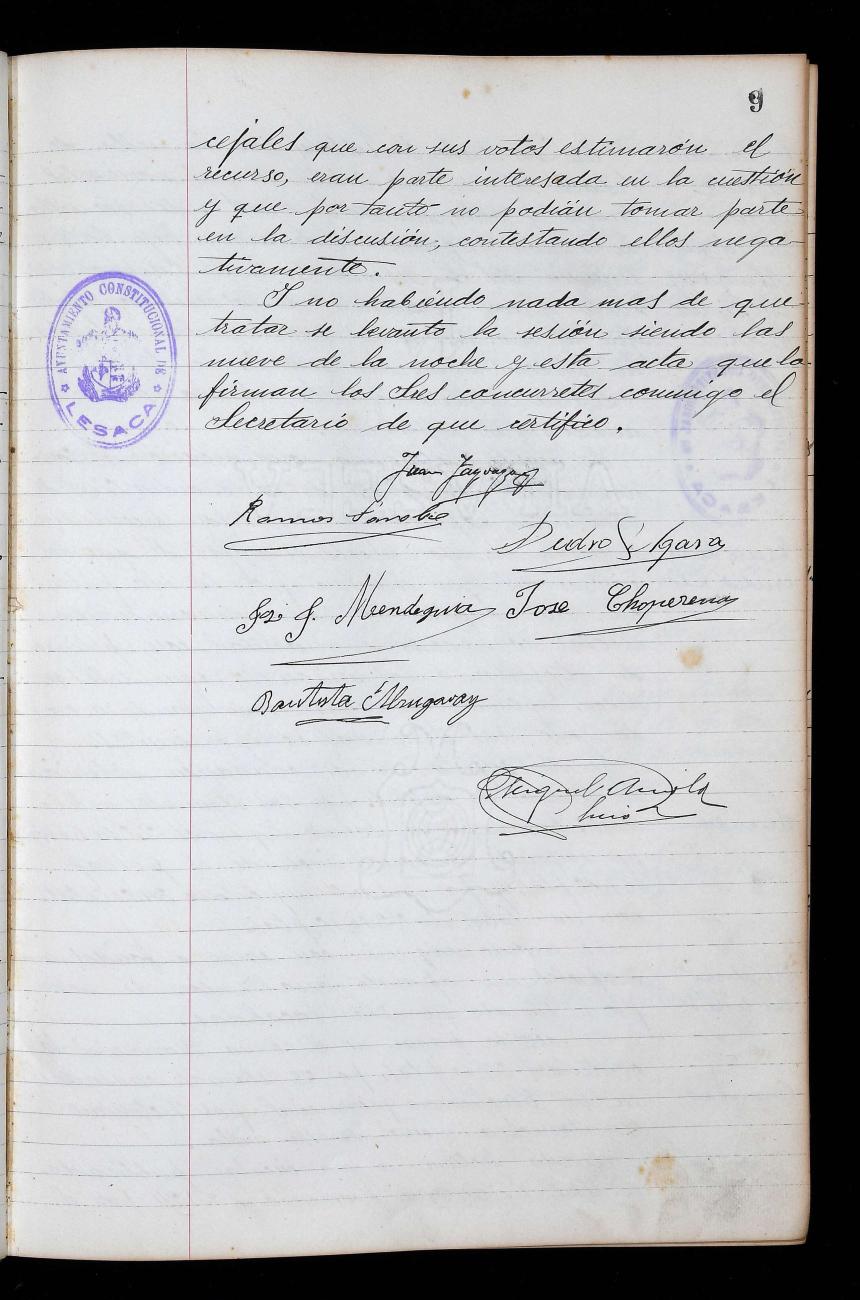 9
cejales que con sus votos estimarón el
recurso, eran parte interesada en la cuestión
y que por tanto no podián tomar parte
en la discusión, contestando ellos nega-
tivamente.
I no habiendo nada mas de que
tratar se levanto la sesión siendo las
nueve de la noche y esta acta que la
firman los Sres concurretes conmigo el
Secretario de que certifico.
AYUNTAMIENTO CONSTITUCIONAL DE
LESACA
Juan
Ramos
Pedro
J. Mendeguia
Jose Choperena
Bautista
Miguel